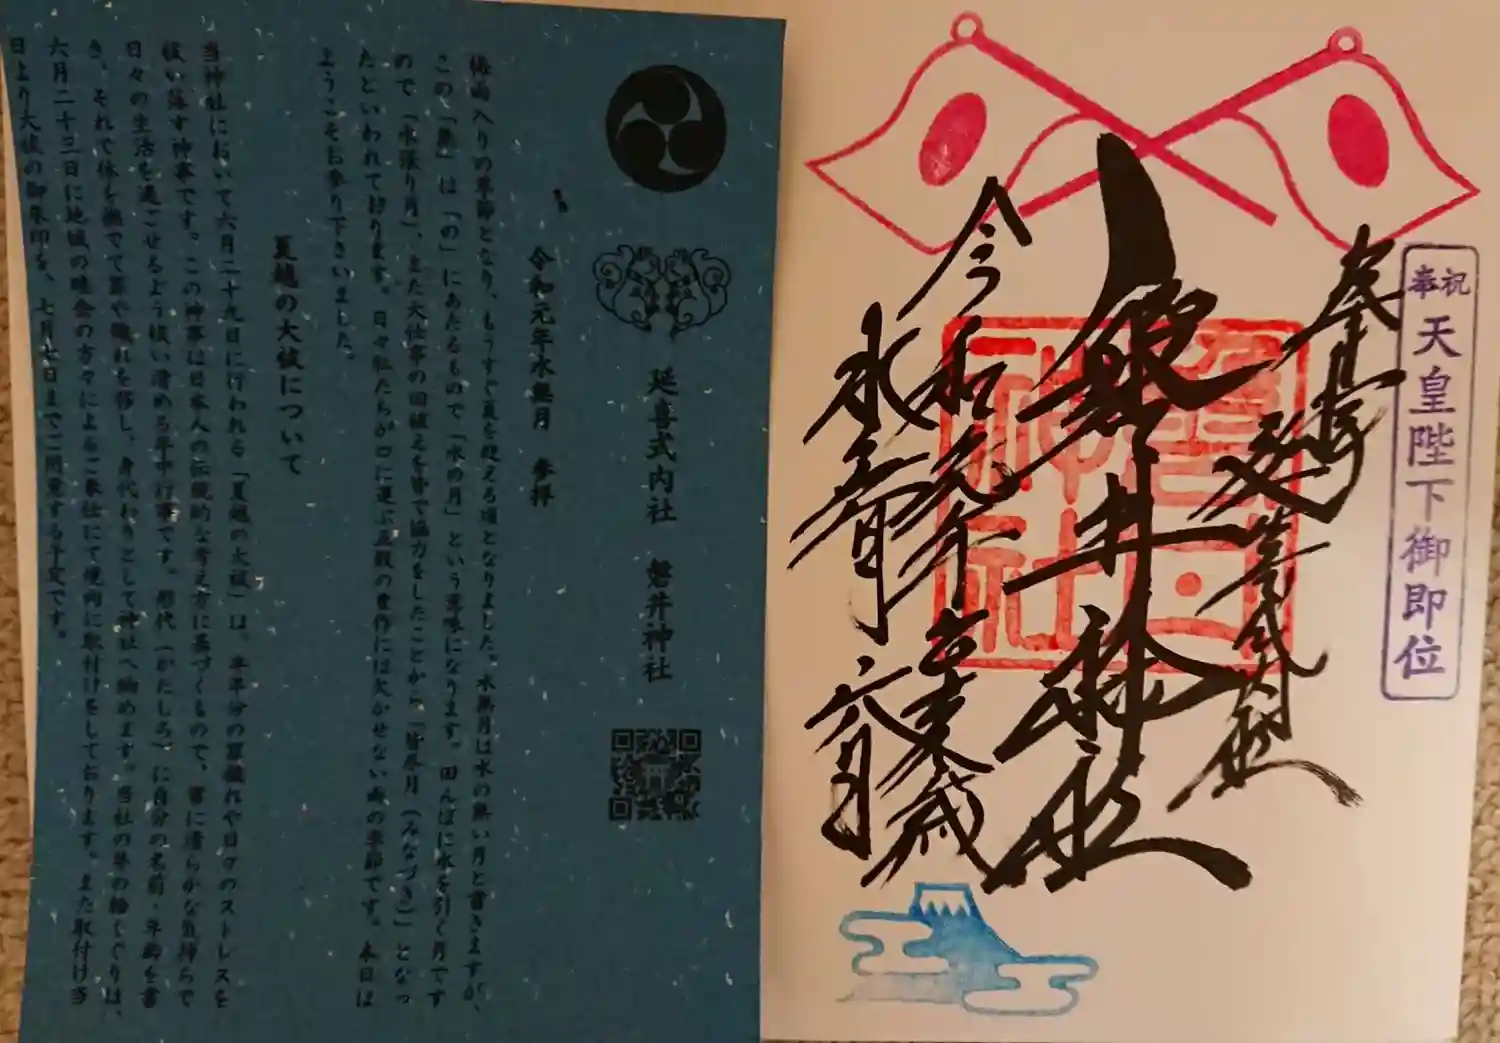 奉祝
天皇陛下御即位
奉拝
延喜式内社
磐井神社
令和元年
水無月
六月
磐井神社
延喜式内社 磐井神社
令和元年水無月 参拝
梅雨入りの季節となり、もうすぐ夏を迎える頃となりました。水無月は水の無い月と書きますが、
この「無」は「の」にあたるもので「水の月」という意味になります。田んぼに水を引く月です
ので「水張り月」、また大仕事の田植えを皆で協力をしたことから「皆尽月(みなづき)」となっ
たといわれて居ります。日々私たちが口に運ぶ五穀の豊作には欠かせない雨の季節です。本日は
ようこそお参り下さいました。
夏越の大祓について
当神社において六月二十九日に行われる「夏越の大祓」は、半年分の罪穢れや日々のストレスを
祓い落す神事です。この神事は日本人の伝統的な考え方に基づくもので、常に清らかな気持ちで
日々の生活を過ごせるよう祓い清める年中行事です。形代(かたしろ)に自分の名前・年齢を書
き、それで体を撫でて罪や穢れを移し、身代わりとして神社へ納めます。当社の茅の輪くぐりは、
六月二十三日に地域の睦会の方々によるご奉仕にて境内に取付けをしております。また取付け当
日より大祓の御朱印を、七月七日までご用意する予定です。